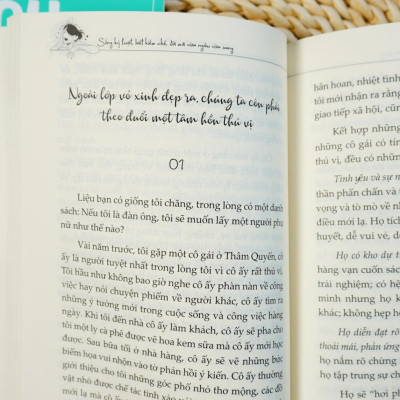 Sống kỷ luật, biết kiềm chế, đời mới viên ngân viên mang
Ngoài lớp vỏ xinh đẹp ra, chúng ta còn phải
theo đuổi một tâm hồn thú vị
01
Liệu bạn có giống tôi chăng, trong lòng có một danh
sách: Nếu tôi là đàn ông, tôi sẽ muốn lấy một người phụ
nữ như thế nào?
Vài năm trước, tôi gặp một cô gái ở Thâm Quyến, cô
ấy là người tuyệt nhất trong lòng tôi vì cô ấy rất thú vị.
Tôi hầu như không bao giờ nghe cô ấy phàn nàn về công
việc hay nói chuyện phiếm về người khác, cô ấy tìm ra
những ý tưởng mới trong cuộc sống và công việc hàng
ngày. Khi tôi đến nhà cô ấy làm khách, cô ấy sẽ pha cho
tôi một ly cà phê được vẽ hoa kem sữa mà cô ấy mới học
được. Sau bữa tối ở nhà hàng, cô ấy sẽ vẽ những bức
biếm họa vui nhộn vào tờ phản hồi ý kiến. Cô ấy thường
giới thiệu cho tôi những góc phố nhỏ thơ mộng, các đồ
vật nhỏ được chế tác tinh xảo
mới lạ mà cô ấy
hân hoan, nhiệt tình
tôi mới nhận ra rằng
giao tiếp xã hội, cũn
Kết hợp những
những cô gái có tín
thú vị, đều có những
Tình yêu và sự n
thần phấn chấn và t
vọng và tò mò về nh
điều mới lạ. Họ tích
huyết, dễ vui vẻ, do
Họ có kho dự t
hàng vạn cuốn sác
trải nghiệm; có hệ
mình nhưng họ k
khác; không hẹp h
Họ diễn đạt rõ
thoải mái, phản ứng
họ nắm rõ chừng
họ tập trung sự ch
Họ sẽ "hơi ph